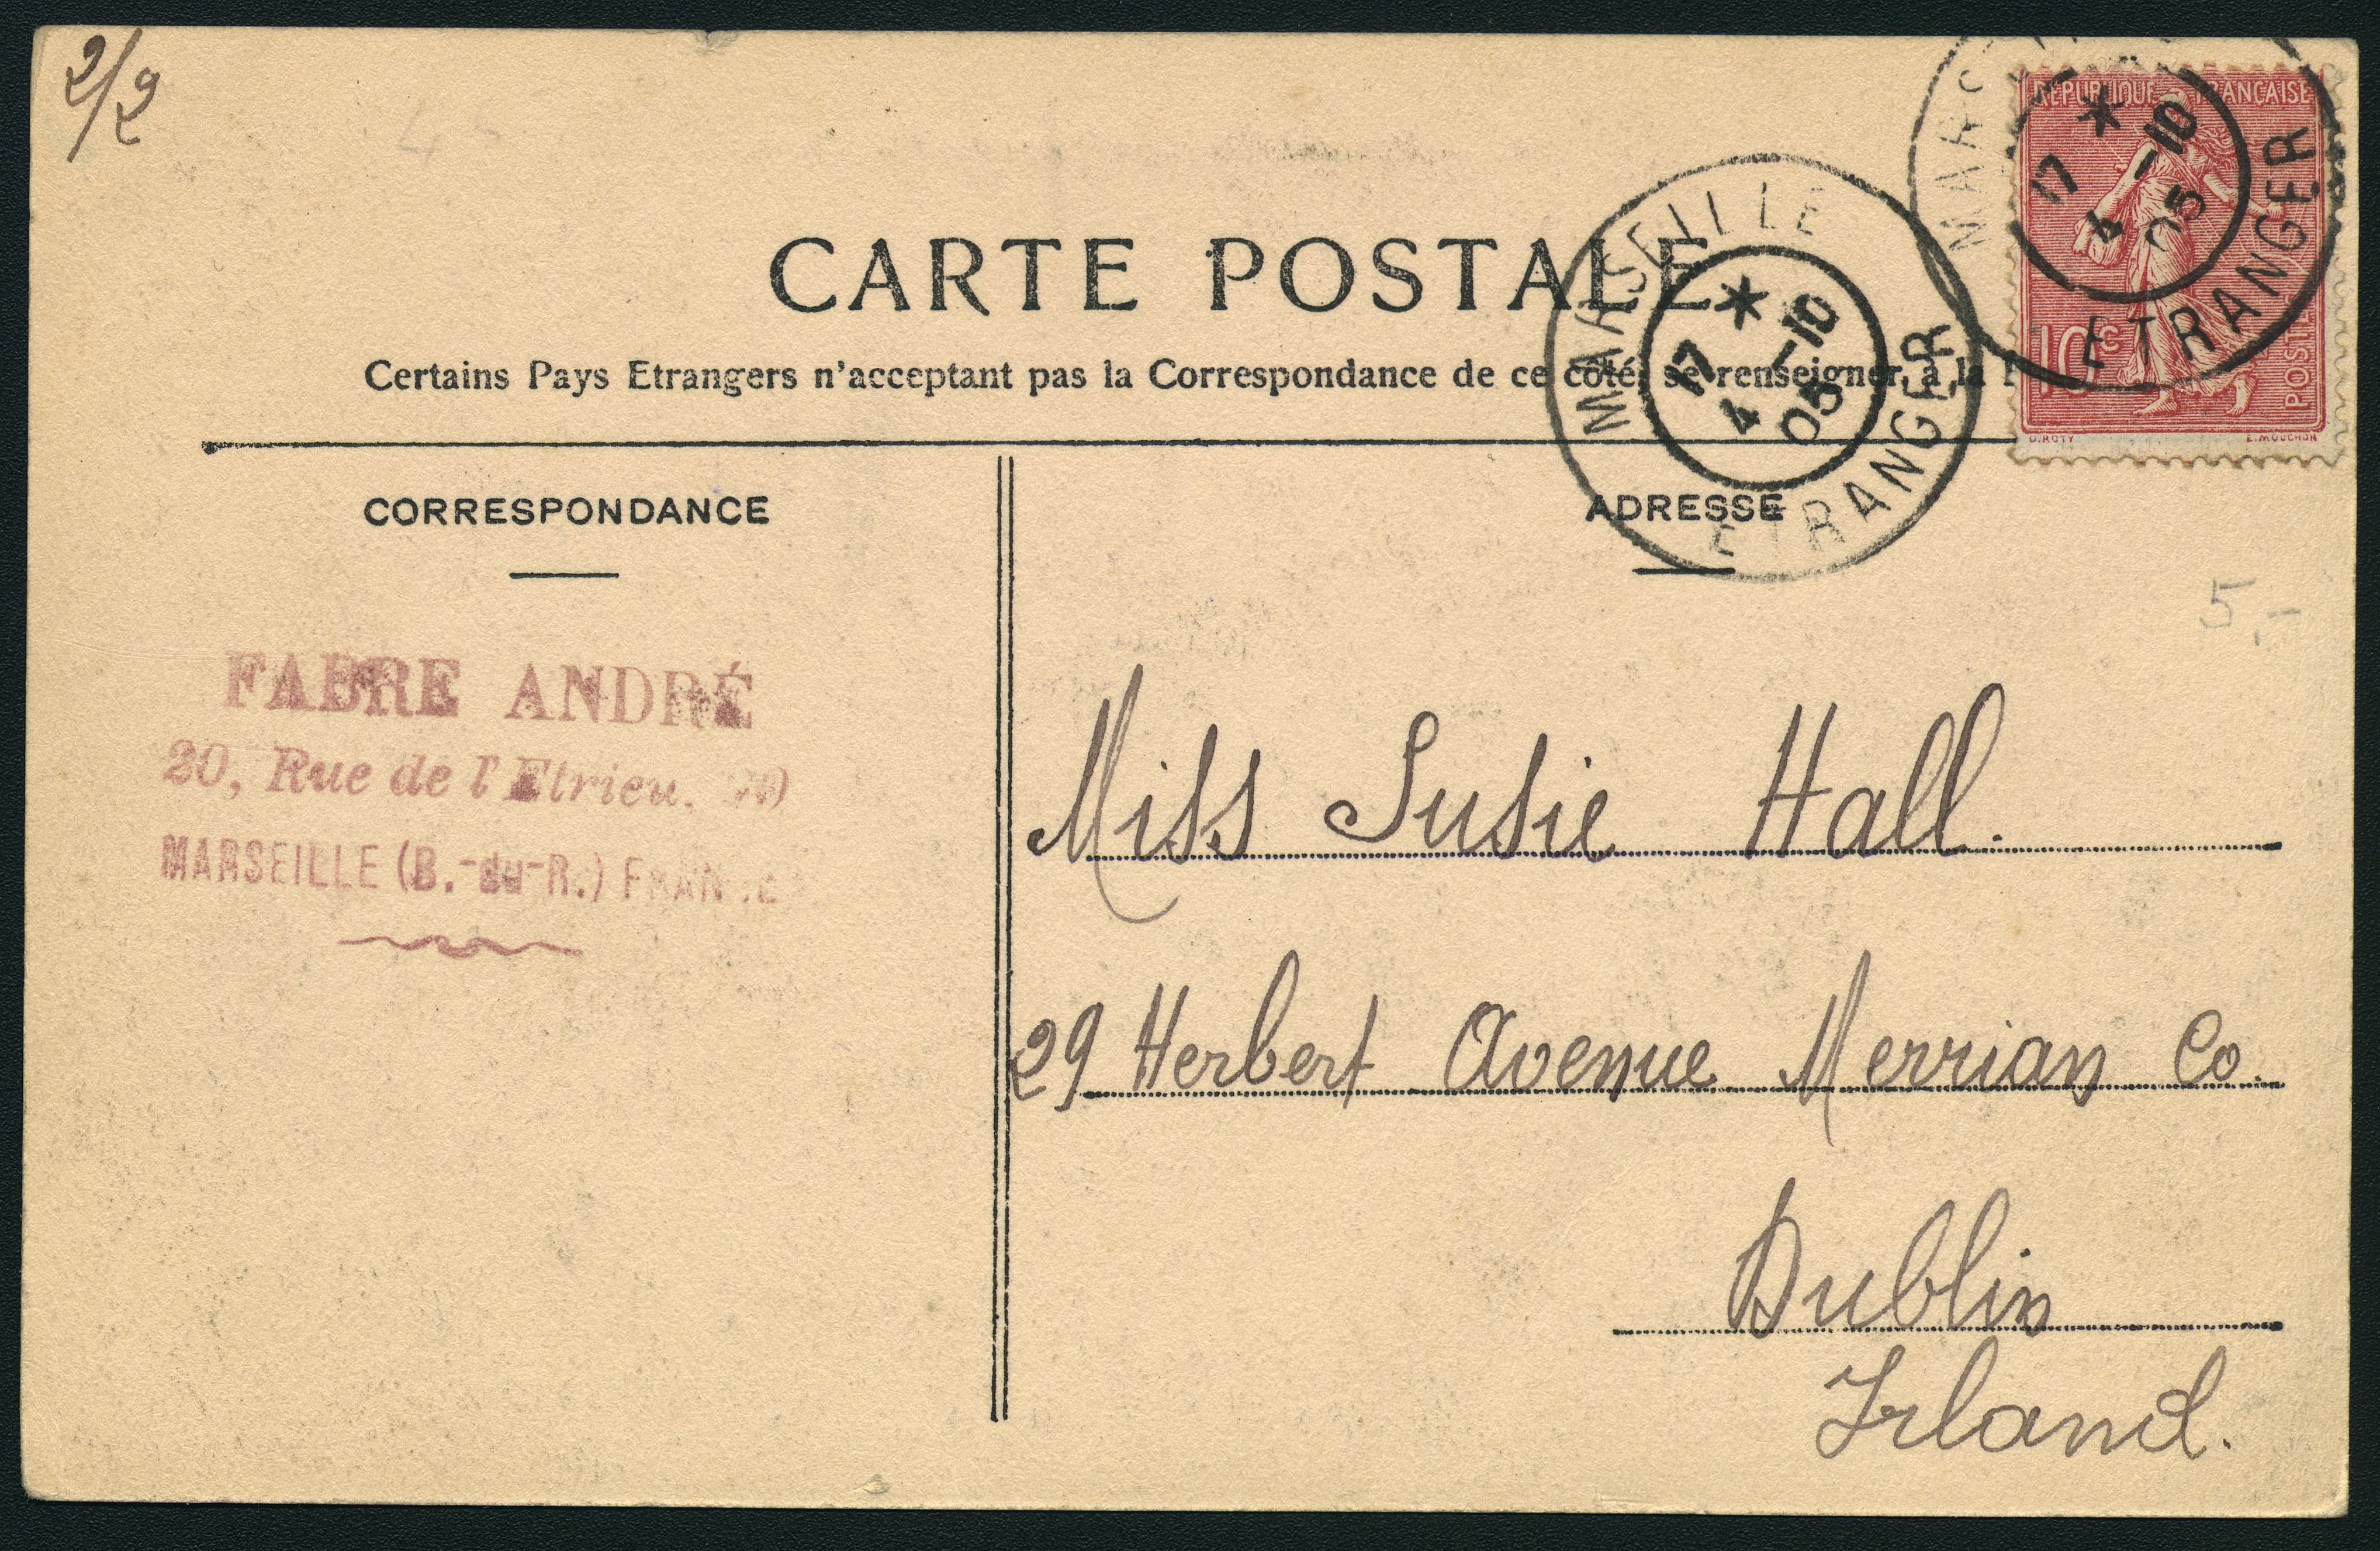 2/2
RÉPUBLIQUE FRANÇAISE
10c
POSTES
O. ROTY
E. MOUCHON
MARSEILLE
17 * 4 -10 05
ETRANGER
MARSEILLE
17 * 4 -10 05
ETRANGER
CARTE POSTALE
Certains Pays Etrangers n'acceptant pas la Correspondance de ce côté, se renseigner à la
CORRESPONDANCE
ADRESSE
5,-
FABRE ANDRÉ
20, Rue de l'Etrieu, 20
MARSEILLE (B.-du-R.) FRANCE
Miss Susie Hall.
29 Herbert Avenue Merrian Co.
Dublin
Irland.